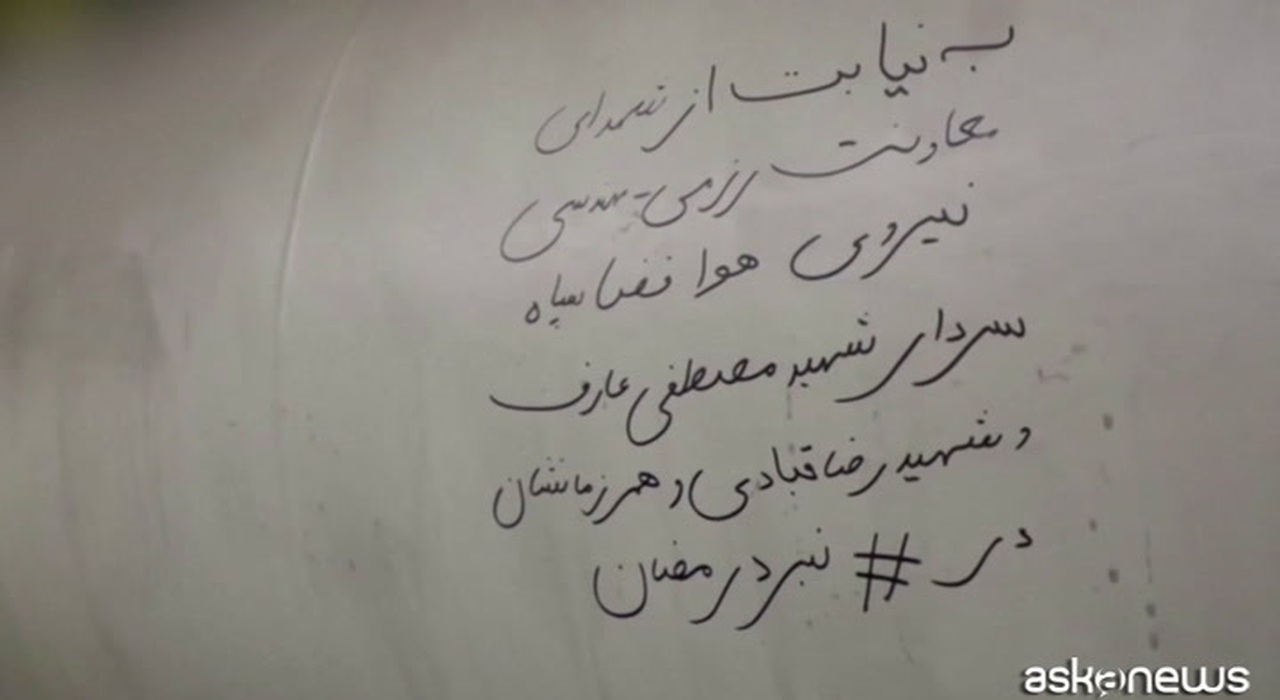 به نیابت از شهدای
معاونت رزمی-مهندسی
نیروی هوا فضا سپاه
سردار شهید مصطفی عارف
و شهید رضا قبادی و همرزمانشان
در # نبرد رمضان
askanews